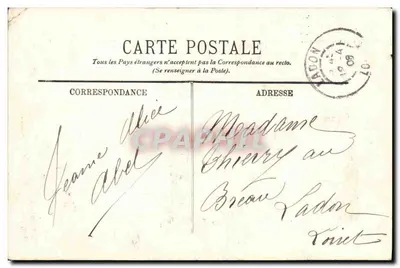 CARTE POSTALE
Tous les Pays étrangers n'acceptent pas la Correspondance au recto.
(Se renseigner à la Poste).
CORRESPONDANCE
ADRESSE
Jeanne Alice
Abel
Madame
Thierry au
Bréau Ladon
Loiret
LADON
08
CPAPHIL